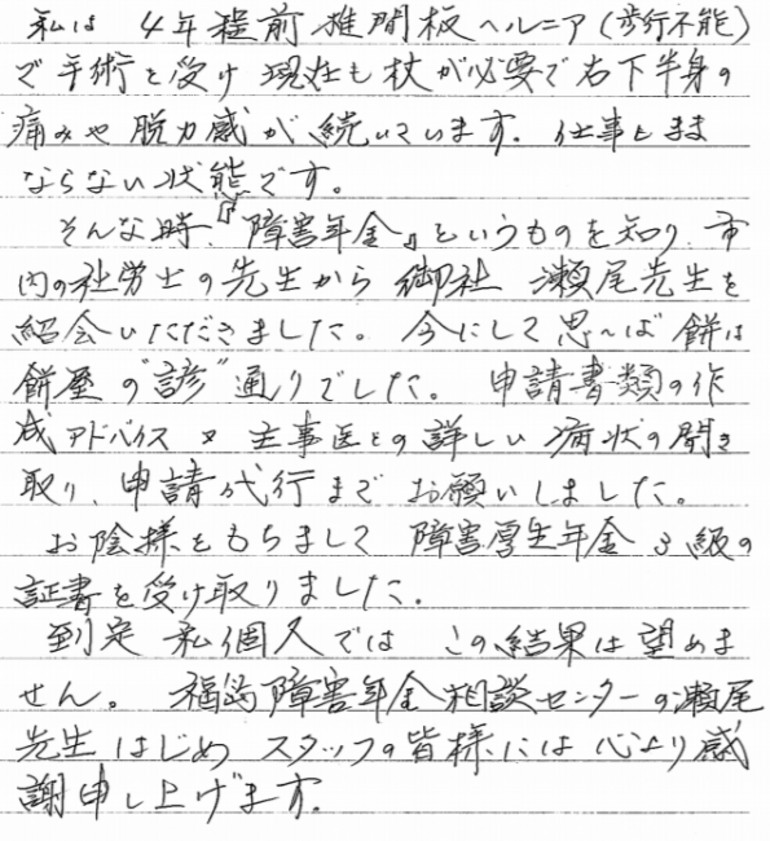 私は 4年程前 椎間板ヘルニア(歩行不能)
で手術を受け 現在も杖が必要で右下半身の
痛みや脱力感が続いています. 仕事もまま
ならない状態です。
そんな時、『障害年金』というものを知り、市
内の社労士の先生から 御社 瀬尾先生を
紹会いただきました。 今にして思へば 餅は
餅屋の"諺"通りでした。 申請書類の作
成アドバイス 又 主事医との詳しい病状の聞き
取り、申請代行まで お願いしました。
お陰様をもちまして 障害厚生年金 3級の
証書を受け取りました.
到底 私個人では この結果は望めま
せん。 福島障害年金相談センターの瀬尾
先生はじめ スタッフの皆様には心より感
謝申し上げます.